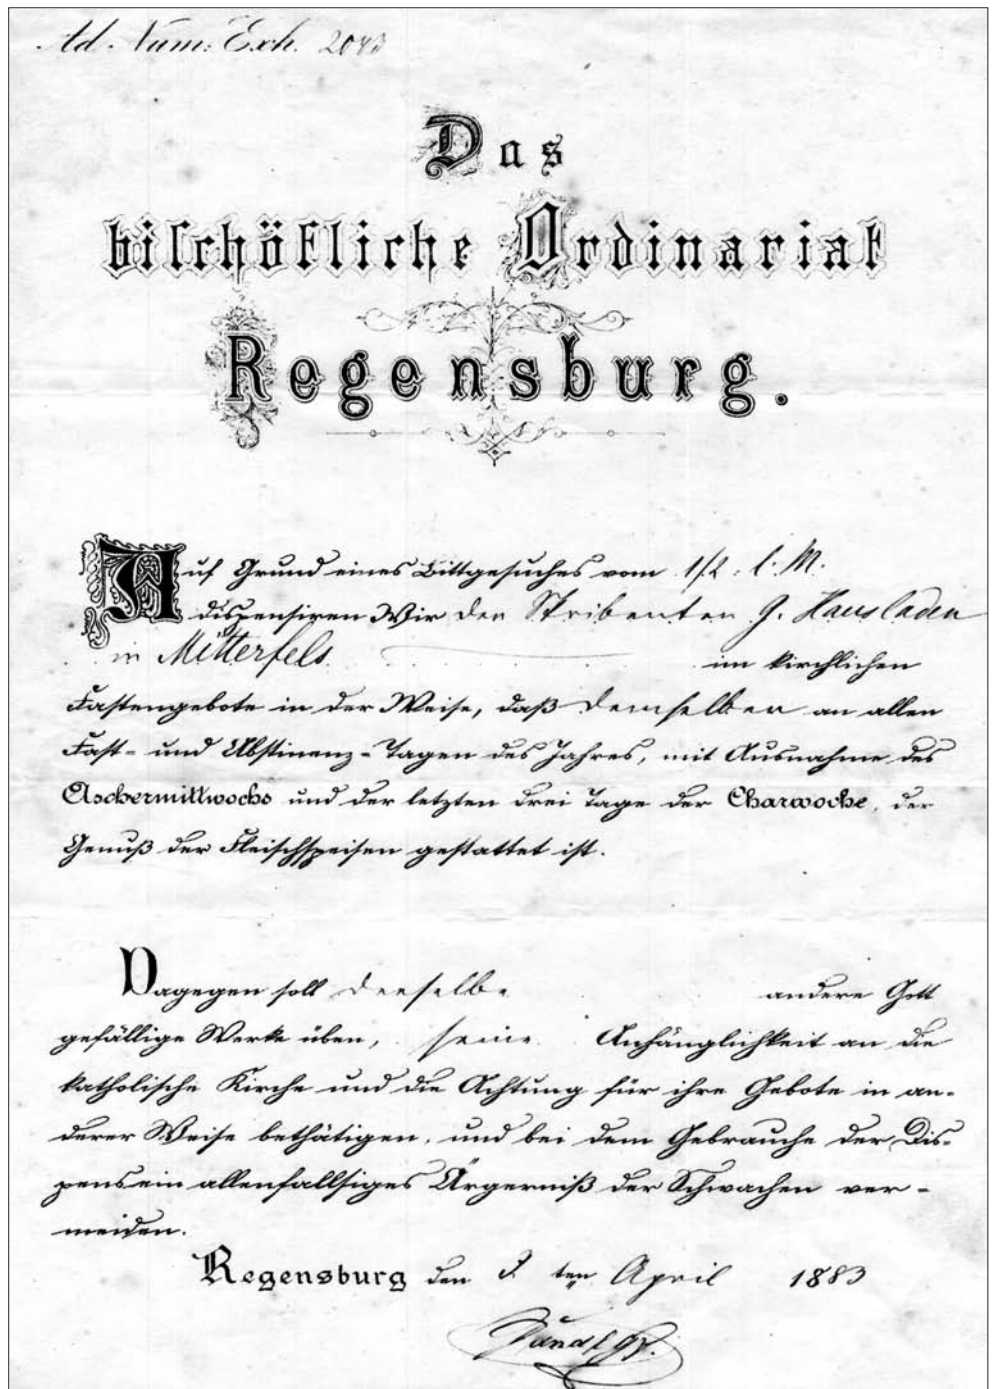 Ad. Num. Exh. 2043
Das
bischöfliche Ordinariat
Regensburg.
Auf Grund eines Bittgesuches vom 1/2. l. M.
dispensiren Wir den Skribenten J. Hausladen
in Mitterfels im kirchlichen
Fastengebote in der Weise, daß demselben an allen
Fast- und Abstinenz-Tagen des Jahres, mit Ausnahme des
Aschermittwochs und der letzten drei Tage der Charwoche, der
Genuß der Fleischspeisen gestattet ist.
Dagegen soll derselbe andere Gott
gefällige Werke üben, seine Anhänglichkeit an die
katholische Kirche und die Achtung für ihre Gebote in an-
derer Weise bethätigen, und bei dem Gebrauche der Dis-
pens ein allenfallsiges Ärgerniß der Schwachen ver-
meiden.
Regensburg den ten April 1883